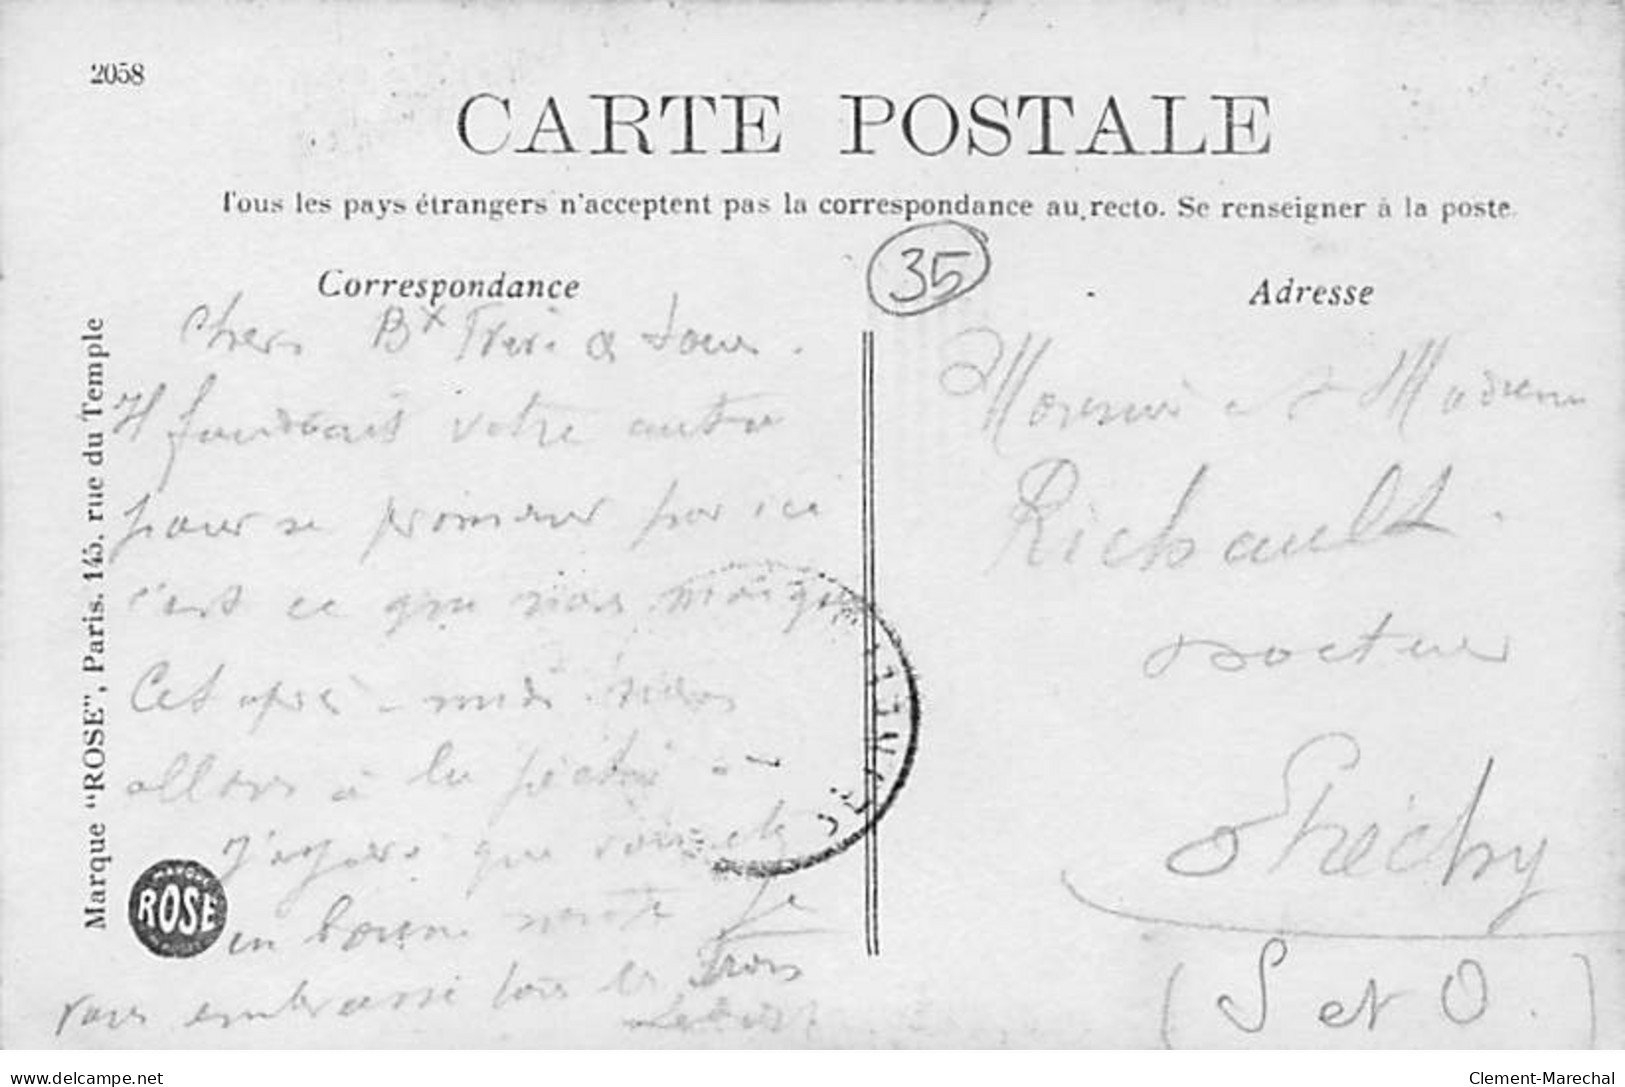 2058
CARTE POSTALE
Tous les pays étrangers n'acceptent pas la correspondance au recto. Se renseigner à la poste.
35
Correspondance
Adresse
Marque "ROSE", Paris. 145, rue du Temple
MARQUE
ROSE
Chers Bx
Il faudrait votre auto
pour se promener par ici
c'est ce que nous
Cet après-midi nous
allons à la
J'espère que vous êtes
en bonne santé Je
vous embrasse tous les Trois
Monsieur et Madame
Richault.
Docteur
Etréchy
(S et O)
delcampe.net
Clement-Marechal